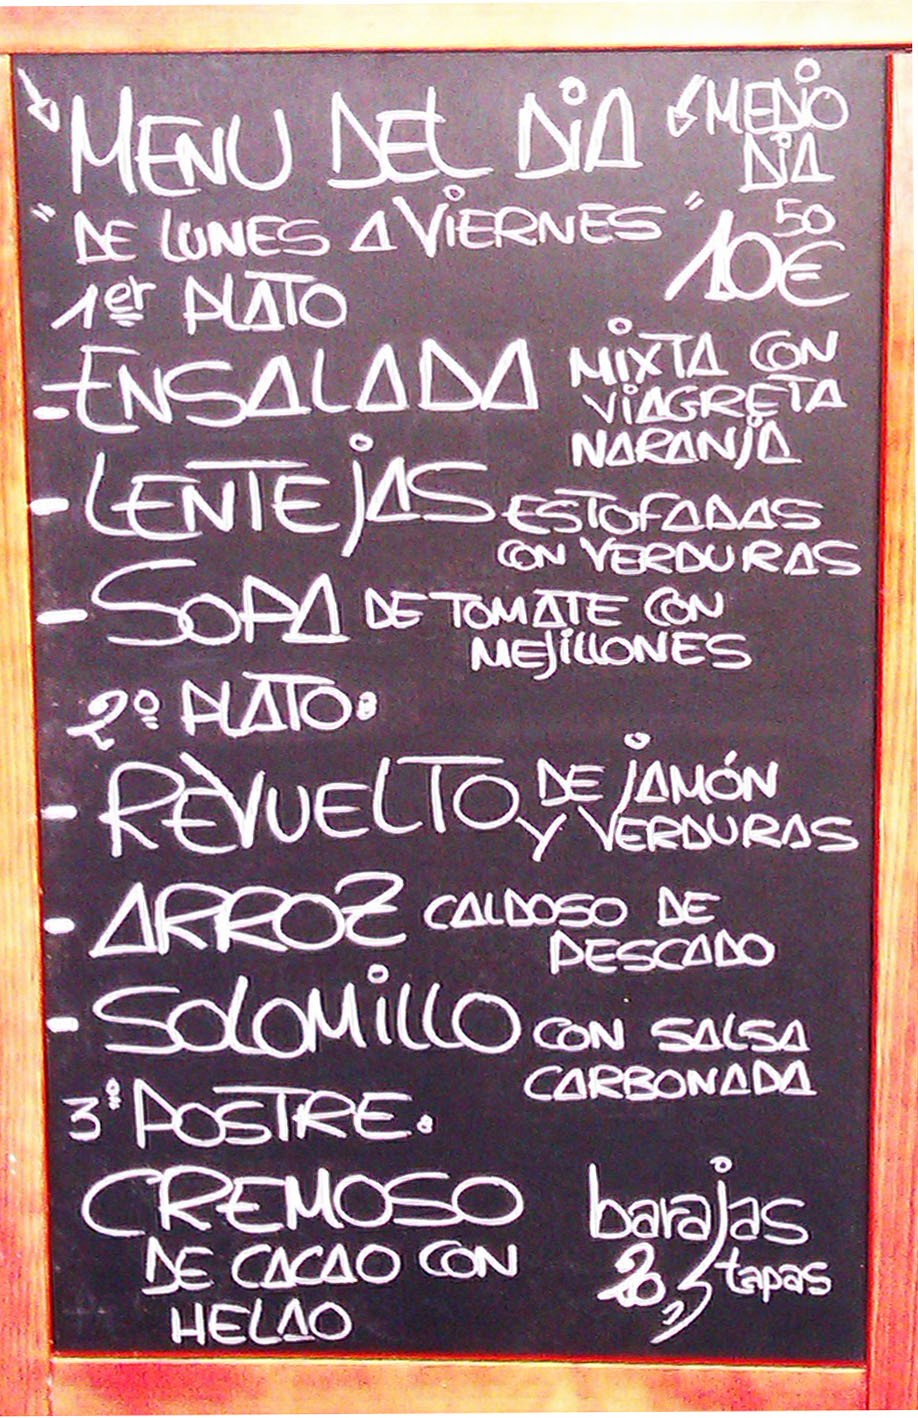 MENU DEL DiA MEDiO DiA
"DE LUNES A ViERNES" 10 50 €
1er PLATO
- ENSALADA MiXTA CON
ViAGRETA
NARANjA
- LENTEjAS ESTOFADAS
CON VERDURAS
- SOPA DE TOMATE CON
MEjiLLONES
2º PLATO:
- REVUELTO DE jAMÓN
Y VERDURAS
- ARROZ CALDOSO DE
PESCADO
- SOLOMiLLO CON SALSA
CARBONADA
3º POSTRE:
CREMOSO
DE CACAO CON
HELAO
barajas
20,5 tapas